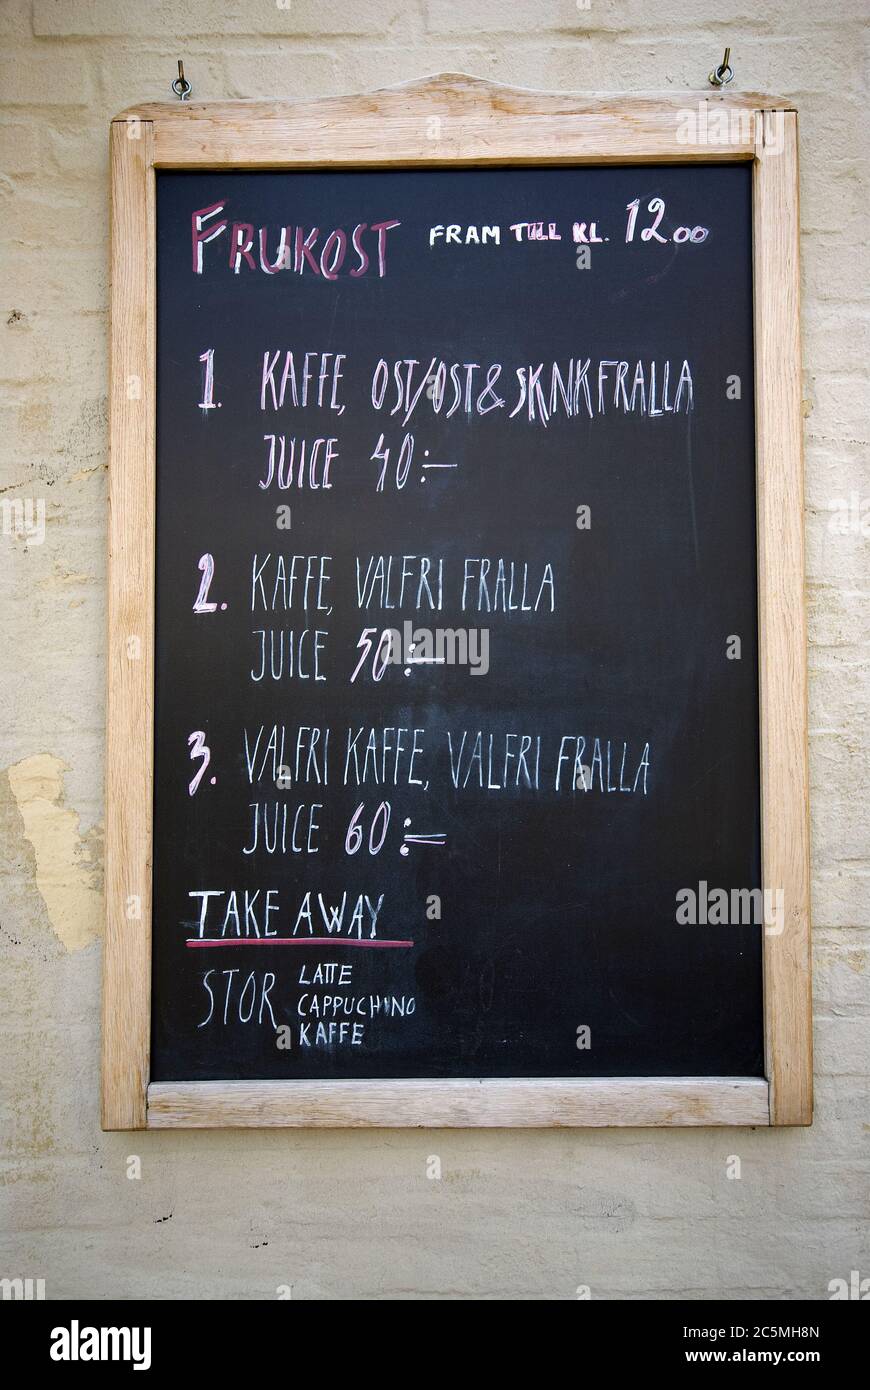 FRUKOST FRAM TILL KL. 12.00
1. KAFFE, OST/OST & SKNKFRALLA
JUICE 40:-
2. KAFFE, VALFRI FRALLA
JUICE 50:-
3. VALFRI KAFFE, VALFRI FRALLA
JUICE 60:-
TAKE AWAY
STOR LATTE
CAPPUCHINO
KAFFE
alamy
Image ID: 2C5MH8N
www.alamy.com